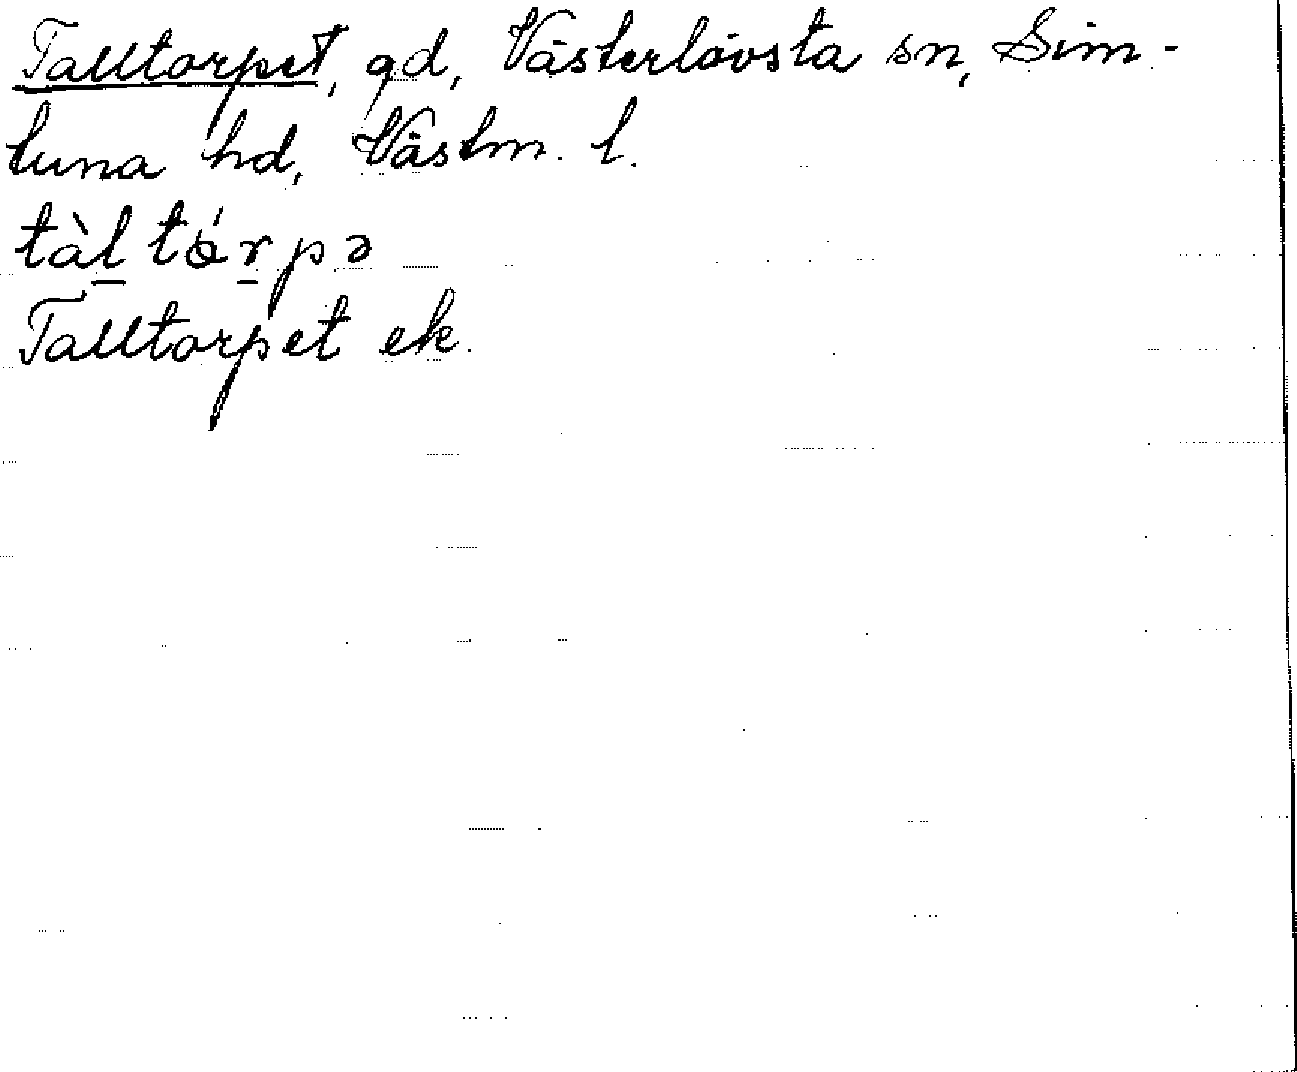 Talltorpet, gd, Västerlövsta sn, Sim-
tuna hd, Västm. l.
tàl̲ tárpə
Talltorpet ek.